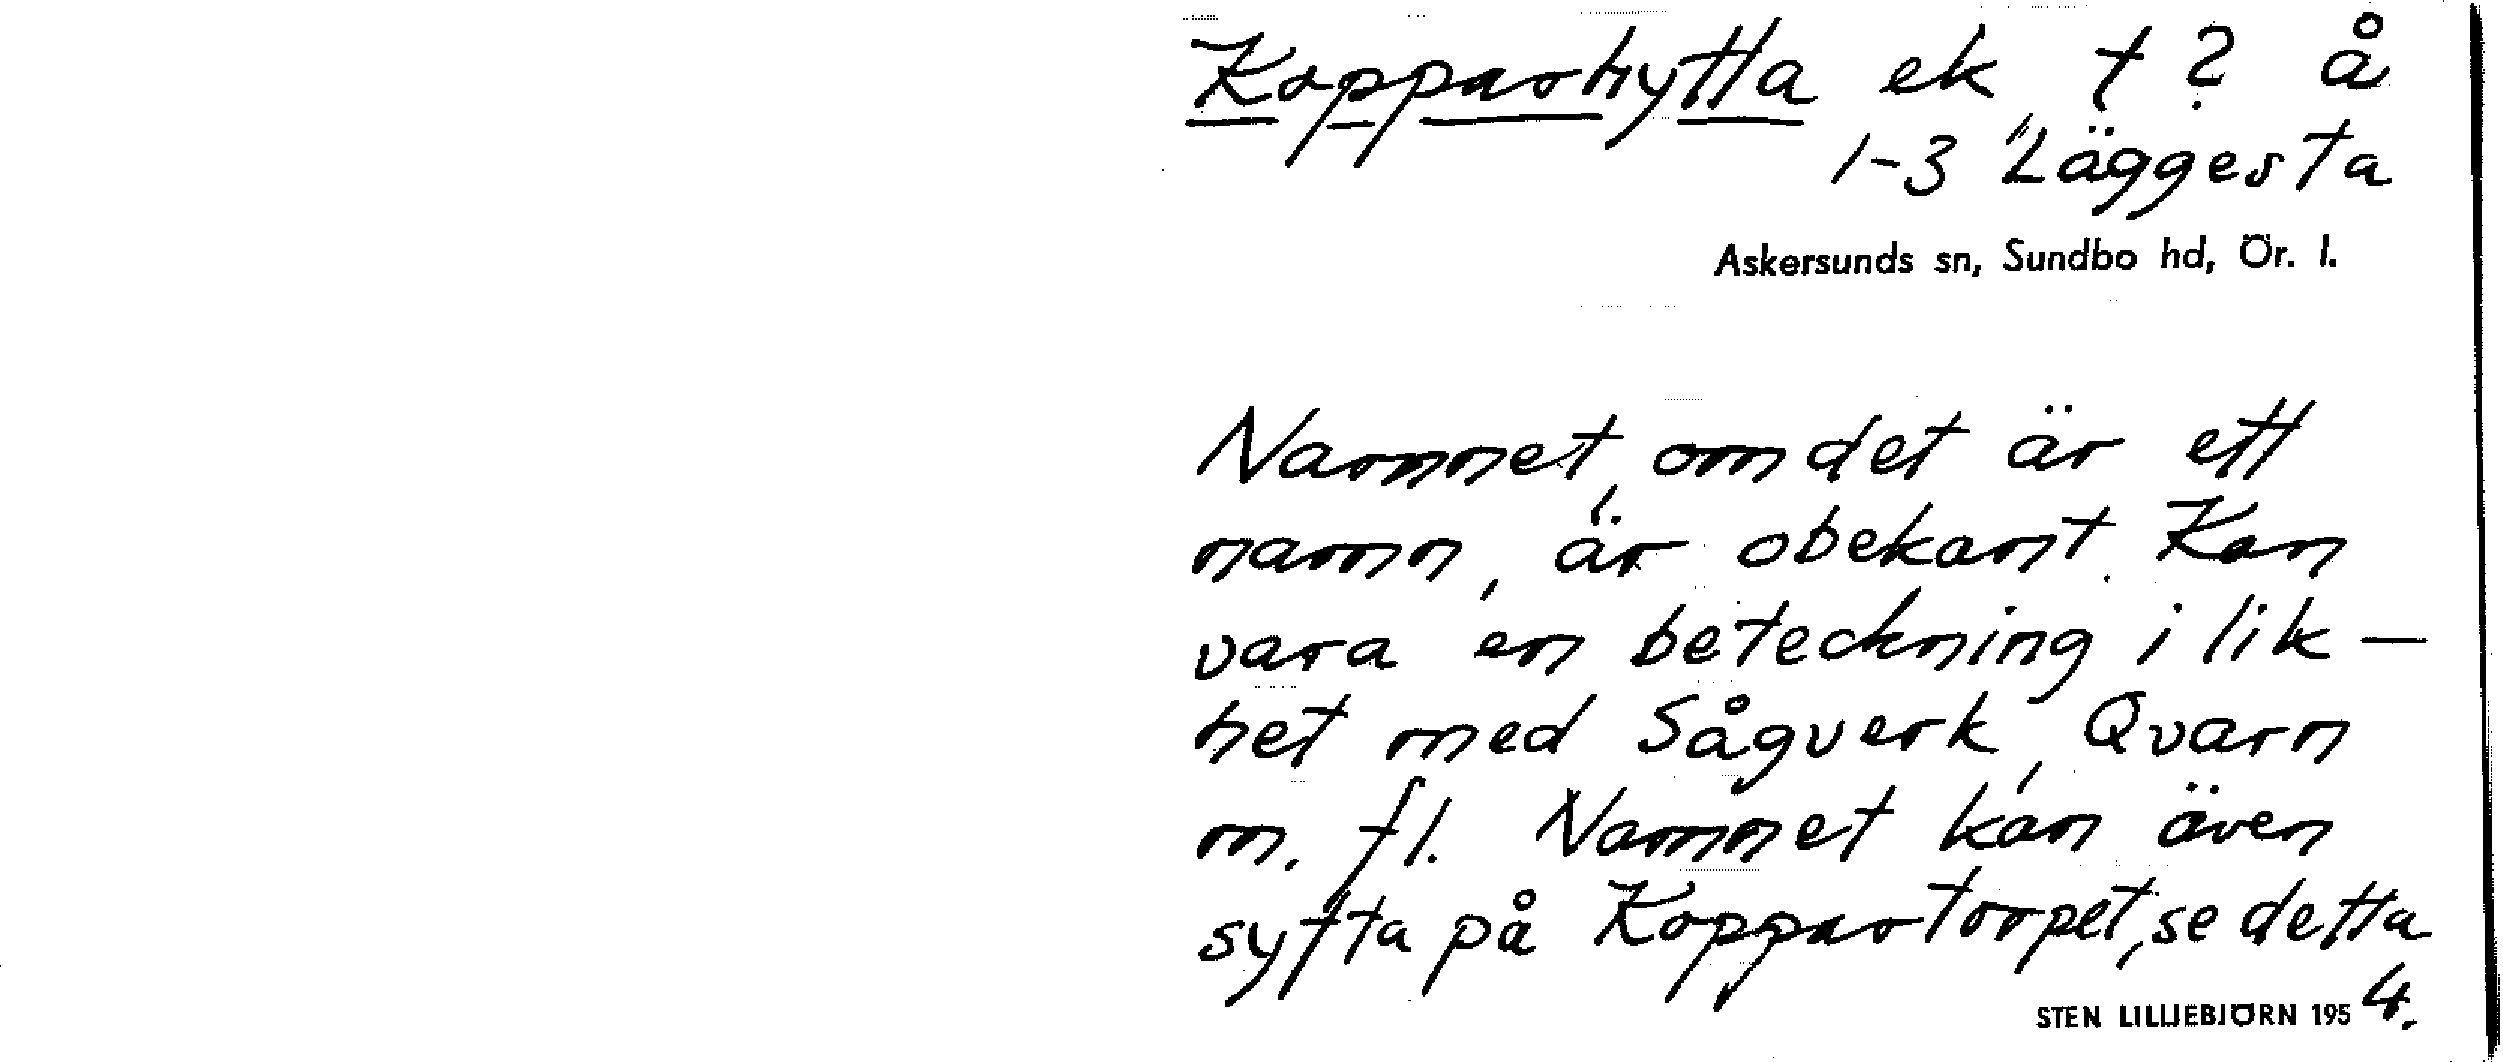 Kopparhytta ek t ? å
1-3 Läggesta
Askersunds sn, Sundbo hd, Ör. l.
Namnet, om det är ett
namn, är obekant. Kan
vara en beteckning i lik-
het med Sågverk, Qvarn
m. fl. Namnet kan även
syfta på Koppartorpet, se detta
STEN LILLIEBJÖRN 1954.